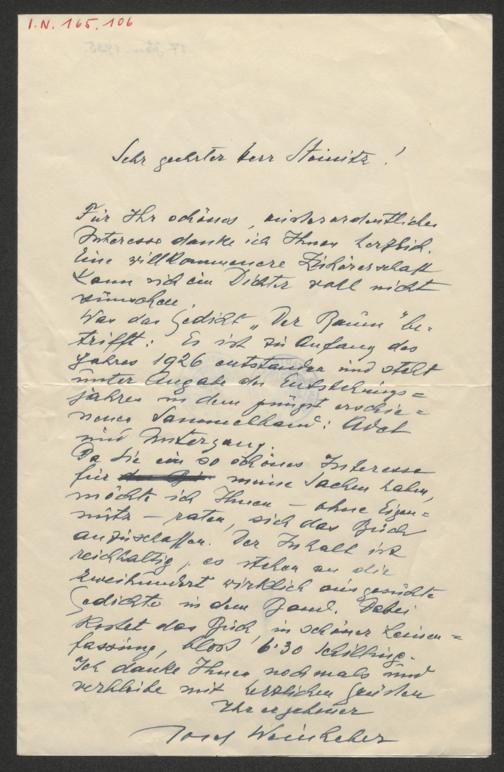 I.N. 165.106
Sehr geehrter Herr Steinitz!
Für Ihr schönes, ausserordentliches
Interesse danke ich Ihnen herzlich.
Eine willkommenere Zuhörerschaft
kann sich ein Dichter wohl nicht
wünschen.
Was das Gedicht „Der Baum" be-
trifft: Es ist zu Anfang des
Jahres 1926 entstanden und steht
unter Angabe des Entstehungs=
jahres in dem jüngst erschie=
nenen Sammelband: Adel
und Untergang.
Da Sie ein so schönes Interesse
für meine Sachen haben,
möchte ich Ihnen – ohne Eigen=
nutz – raten, sich das Buch
anzuschaffen. Der Inhalt ist
reichhaltig, es stehen an die
zweihundert wirklich ausgesuchte
Gedichte in dem Band. Dabei
kostet das Buch, in schöner Leinen=
fassung, bloss 6·30 Schilling.
Ich danke Ihnen nochmals und
verbleibe mit herzlichen Grüßen
Ihr ergebener
Josef Weinheber